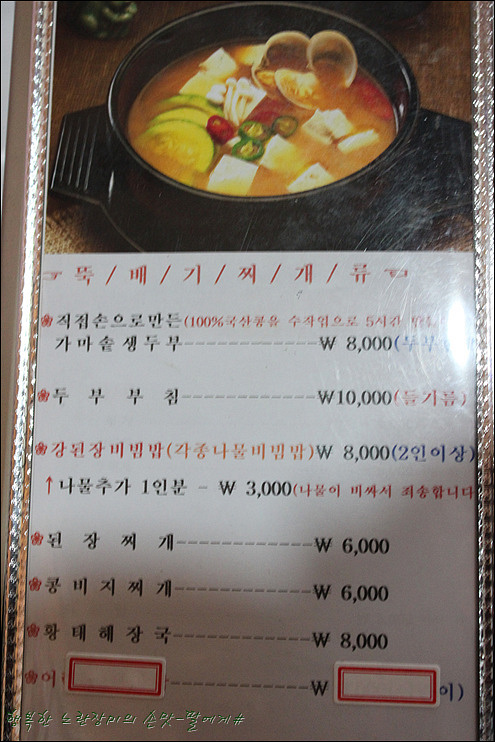 ☞ 뚝 / 배 / 기 / 찌 / 개 / 류 ☜
❀직접손으로만든(100%국산콩을 수작업으로 5시간
가마솥생두부------------₩ 8,000(두부
❀두 부 부 침------------₩10,000(들기름)
❀강된장비빔밥(각종나물비빔밥)₩ 8,000(2인이상)
↑나물추가 1인분 - ₩ 3,000(나물이 비싸서 죄송합니다
❀된 장 찌 개------------₩ 6,000
❀콩비지찌개------------₩ 6,000
❀황태해장국------------₩ 8,000
₩ 이)
행복한 노란장미의 손맛-딸에게#